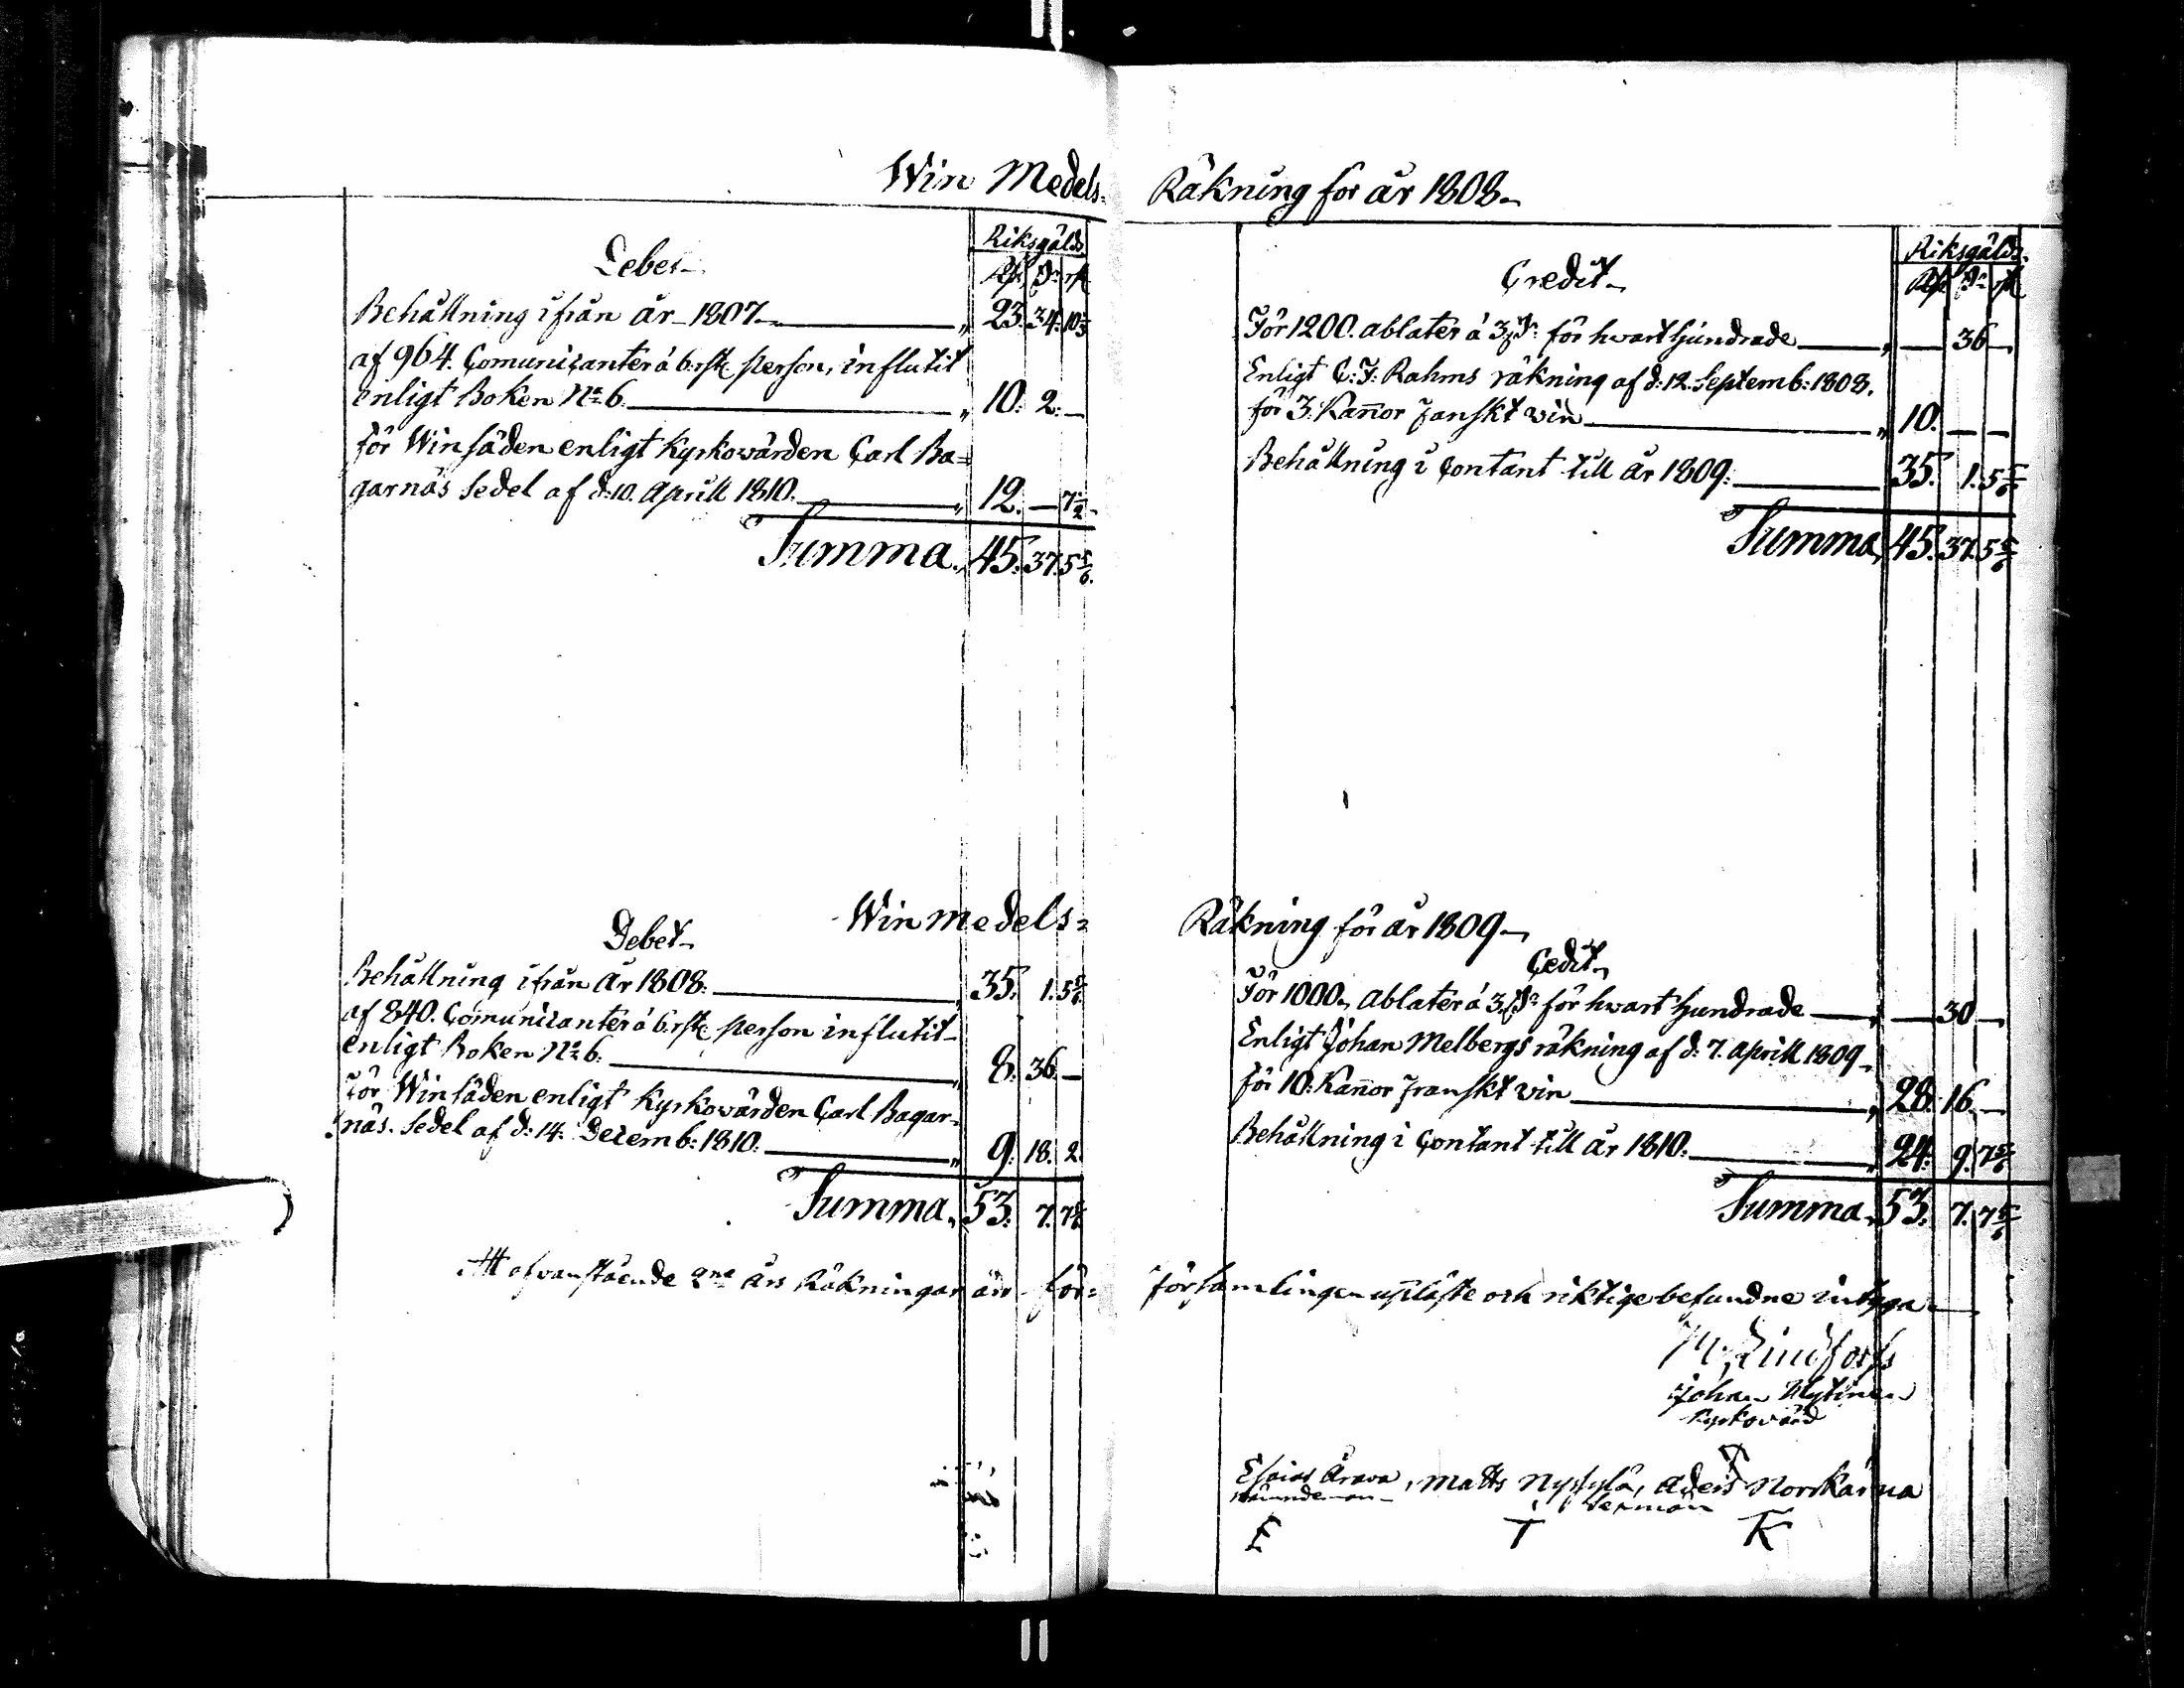 Win Medels-
Debet
Riksgälds
Rd. s. rst.
Behållning ifrån år 1807. 23. 34. 10 1/3
af 964. Comunicanter à 6. rst. person, influtit
enligt Boken No 6. 10. 2. —
för Winsäden enligt Kyrkowärden Carl Ba=
garnäs Sedel af d: 10. Aprill 1810. 12. — 7 1/2
Summa. 45. 37. 5 5/6.
Win medels=
Debet
Behållning ifrån år 1808. 35. 1. 5 5/6
af 840. Comunicanter à 6. rst. person influtit
enligt Boken No 6. 8. 36. —
För Winsäden enligt Kyrkowärden Carl Bagar-
näs. Sedel af d: 14. Decemb: 1810. 9. 18. 2.
Summa. 53. 7. 7 5/6
Att ofvanstående 2ne års Räkningar äro för=
Räkning för år 1808
Credit
Riksgälds.
Rd. s. rst.
För 1200. ablater à 3. s. för hwart Hundrade — 36 —
Enligt C: F: Rahms räkning af d: 12. Septemb: 1808.
för 3. Kannor fanskt win 10. — —
Behållning i Contant till år 1809. 35. 1. 5 5/6
Summa 45. 37. 5 5/6
Räkning för år 1809
Cedit
För 1000. ablater à 3. s. för hwart Hundrade — 30 —
Enligt Johan Melbergs räkning af d: 7. Aprill 1809
för 10. Kannor franskt win 28. 16. —
Behållning i Contant till år 1810. 24. 9. 7 5/6
Summa. 53. 7. 7 5/6
församlingen upläste och riktige befundne intyga
M. Lindfors
Johan
Kyrkowärd
Esaias Årava, Matts Nyssylä, Aders Norrkärna
nämndeman
E T K
11